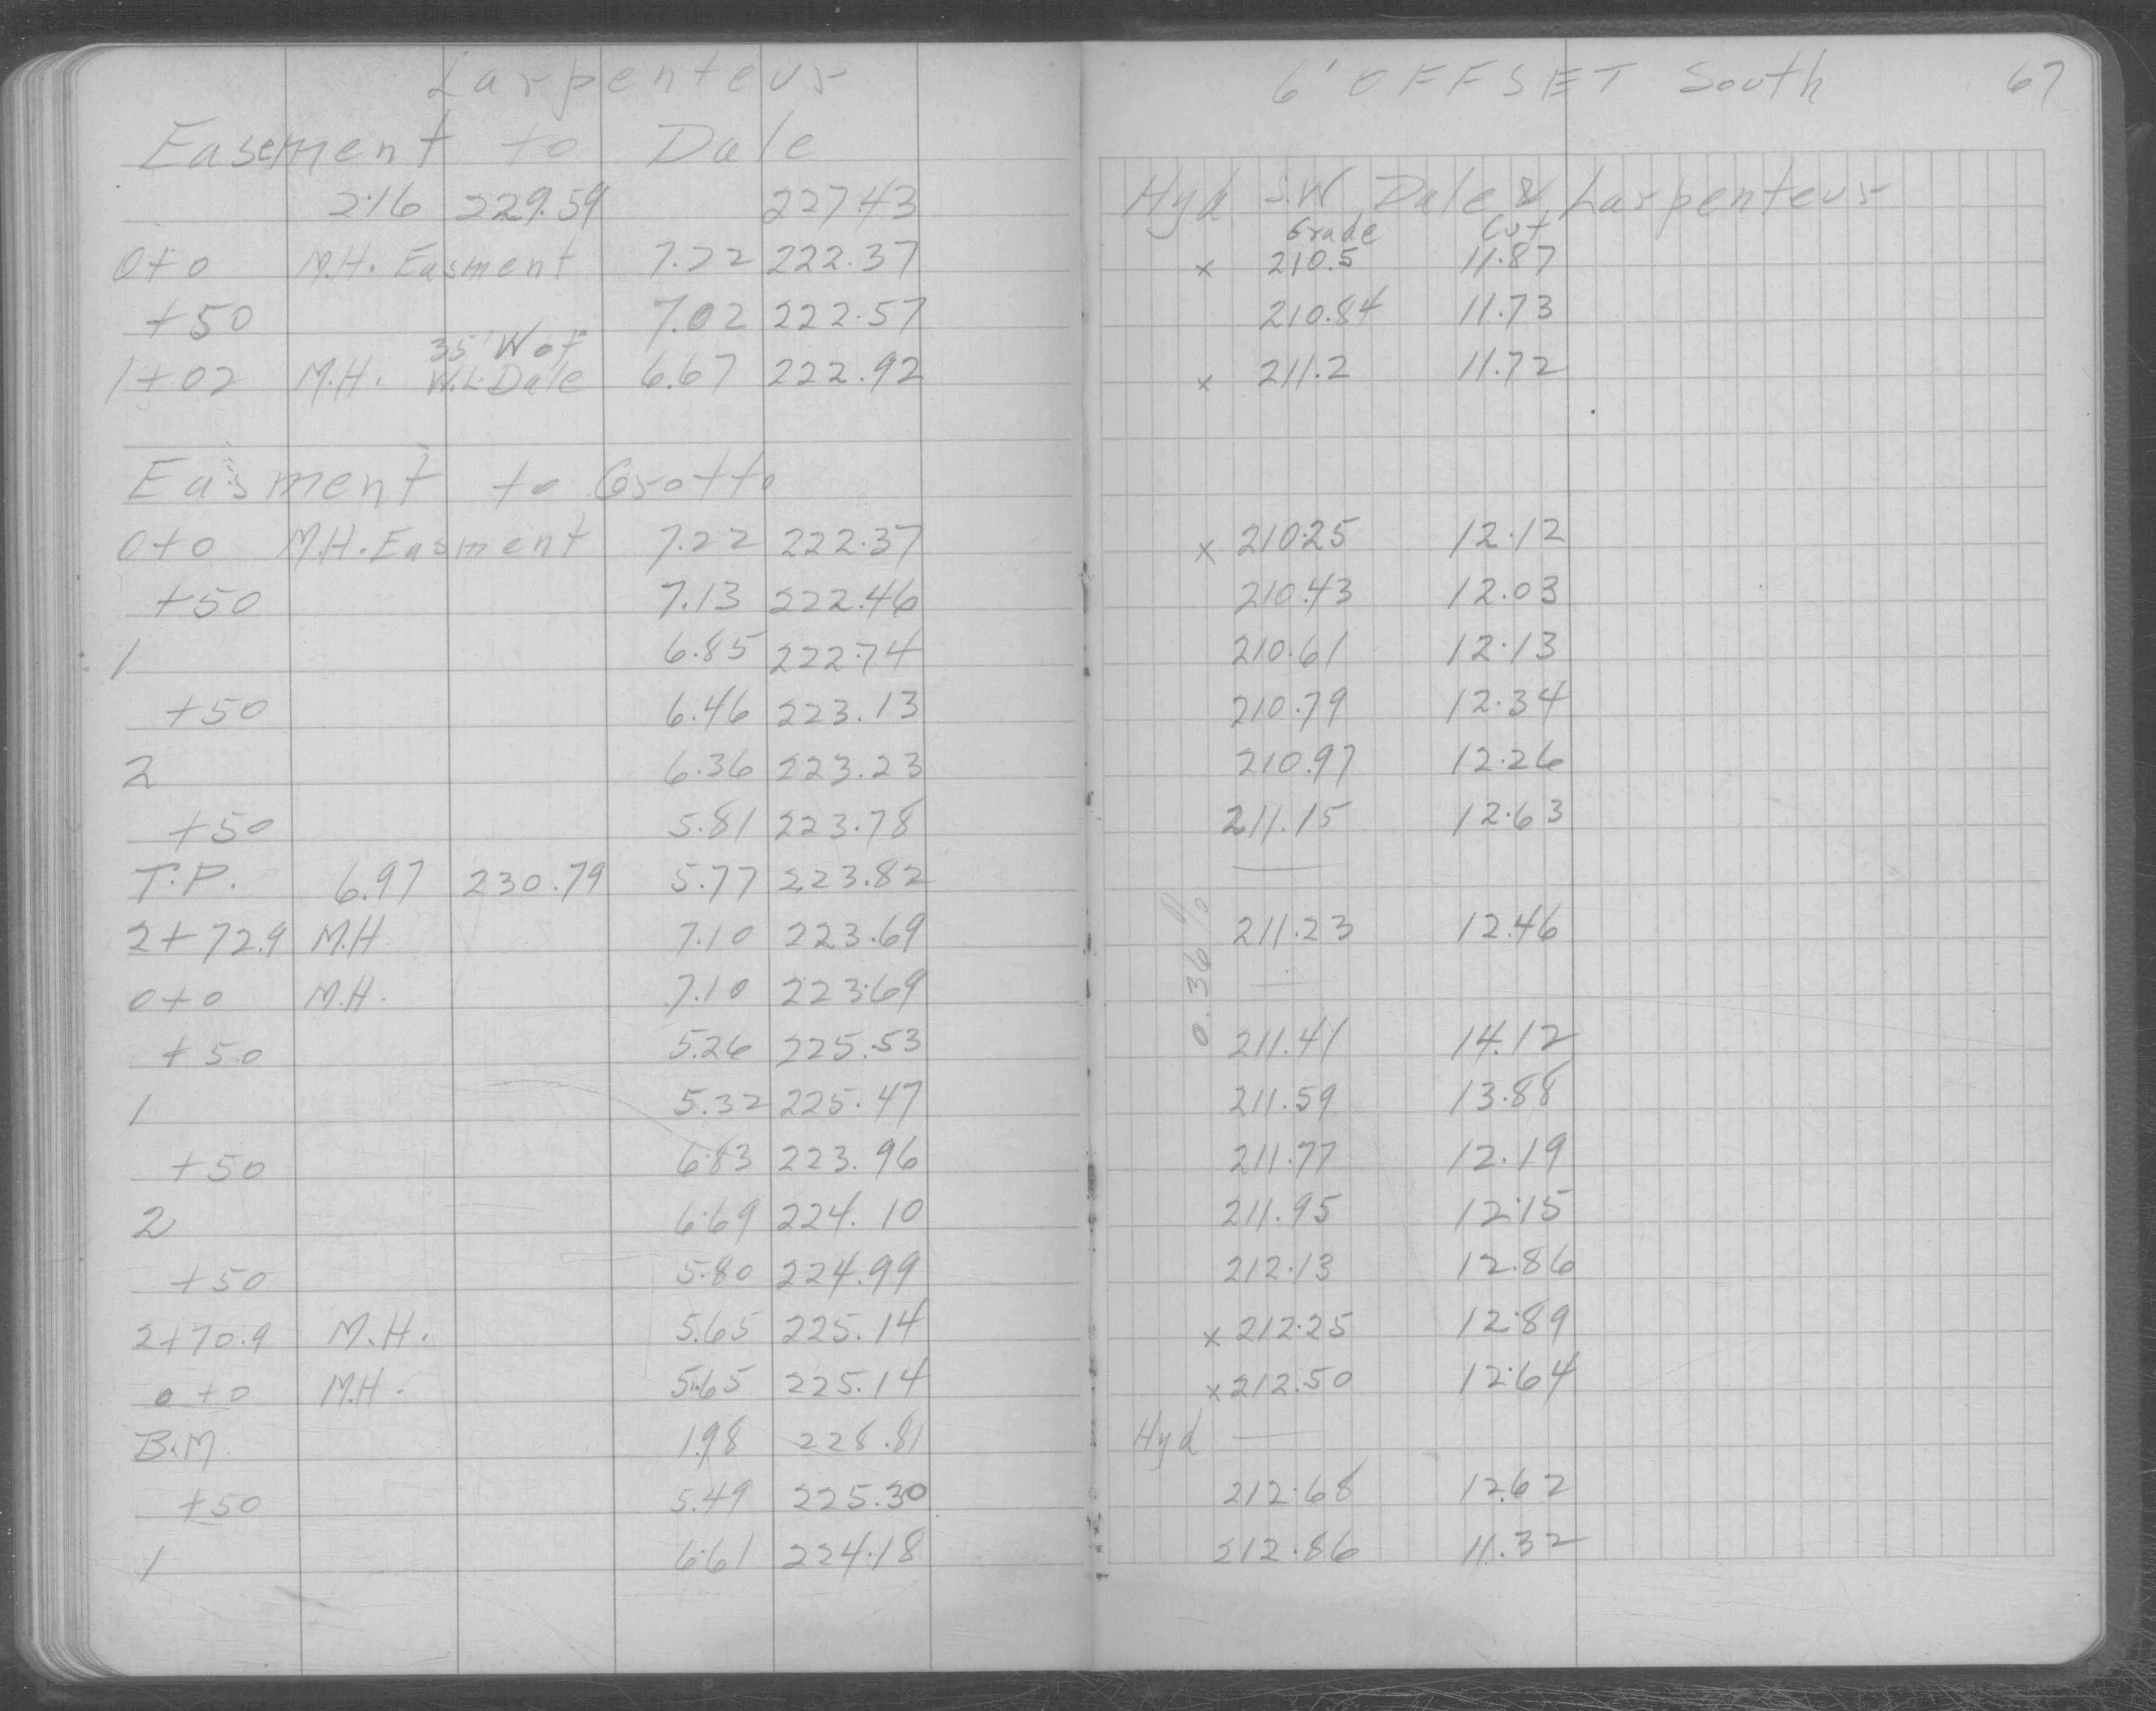 Larpenteur
Easement to Dale
2.16 229.59 227.43
0+0 M.H. Easment 7.22 222.37
+50 7.02 222.57
35' W of
1+02 M.H. W.L. Dale 6.67 222.92
Easment to Grotto
0+0 M.H. Easment 7.22 222.37
+50 7.13 222.46
1 6.85 222.74
+50 6.46 223.13
2 6.36 223.23
+50 5.81 223.78
T.P. 6.97 230.79 5.77 223.82
2+72.9 M.H. 7.10 223.69
0+0 M.H. 7.10 223.69
+50 5.26 225.53
1 5.32 225.47
+50 6.83 223.96
2 6.69 224.10
+50 5.80 224.99
2+70.9 M.H. 5.65 225.14
0+0 M.H. 5.65 225.14
B.M. 1.98 228.81
+50 5.49 225.30
1 6.61 224.18
6' OFFSET South 67
Hyd S.W Dale & Larpenteur
Grade Cut
x 210.5 11.87
210.84 11.73
x 211.2 11.72
x 210.25 12.12
210.43 12.03
210.61 12.13
210.79 12.34
210.97 12.26
211.15 12.63
0.36%
211.23 12.46
211.41 14.12
211.59 13.88
211.77 12.19
211.95 12.15
212.13 12.86
x 212.25 12.89
x 212.50 12.64
Hyd
212.68 12.62
212.86 11.32